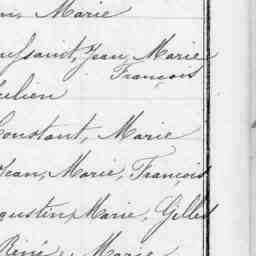 Marie
Toussaint, Jean, Marie
François
Julien
Constant, Marie
Jean, Marie, François
Augustin, Marie, Gilles
René, Marie